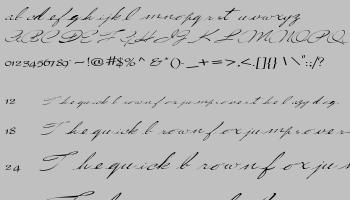 ab d ef gh ijkl mnopqrst uvwxyz
ABCDEFGHIJKLMNOPQ
0123456789 ~!@#$%^ &*()-_+=>,<.[]{}|\":;/?
12 The quick brown fox jumps over the lazy dog.
18 The quick brown fox jumps over
24 The quick brown fox jum